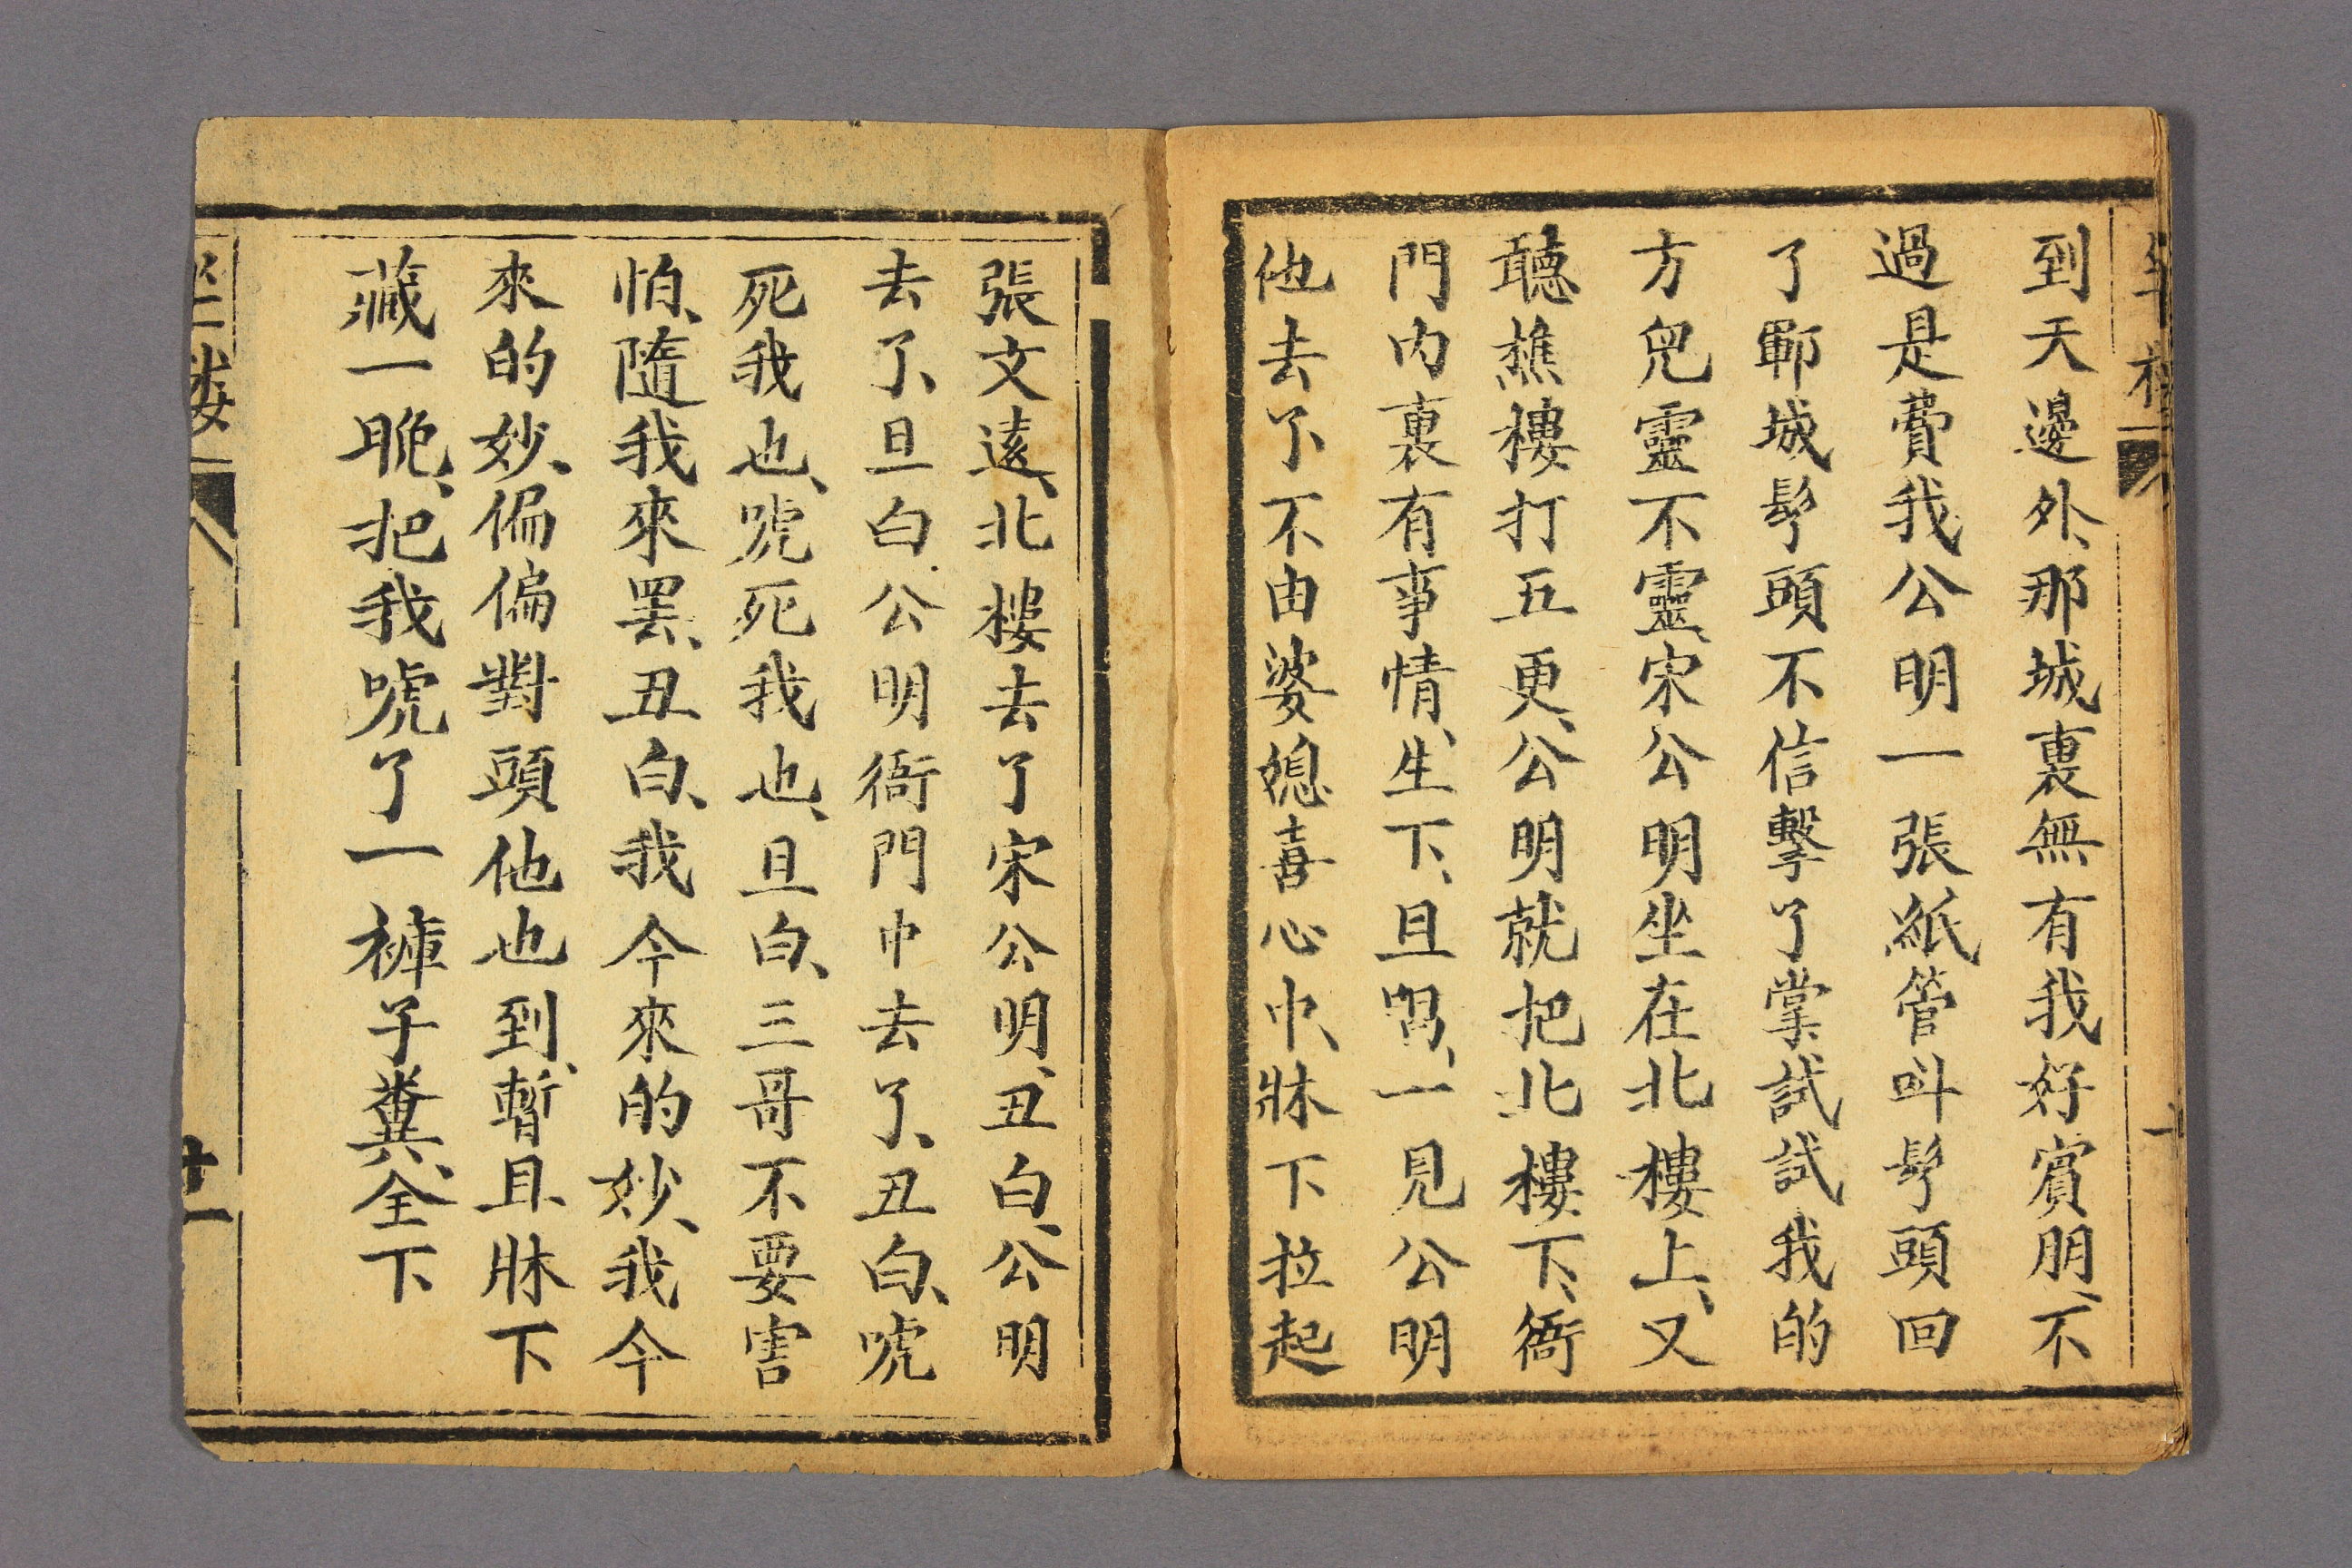 到天邊外、那城裏無有我好賓朋、不
過是費我公明一張紙管叫髩頭回
了鄆城髩頭不信擊了掌試試我的
方兒靈不靈、宋公明坐在北樓上、又
聽樵樓打五更、公明就把北樓下、衙
門內裏有事情、生下、旦唱、一見公明
他去了、不由婆媳喜心中、牀下拉起
張文遠、北樓去了宋公明、丑白、公明
去了、旦白公明衙門中去了、丑白、唬
死我也、唬死我也、旦白、三哥不要害
怕、隨我來罷、丑白、我今來的妙、我今
來的妙、偏偏對頭他也到、暫且牀下
藏一晚、把我唬了一褲子糞、全下
坐楼
十一